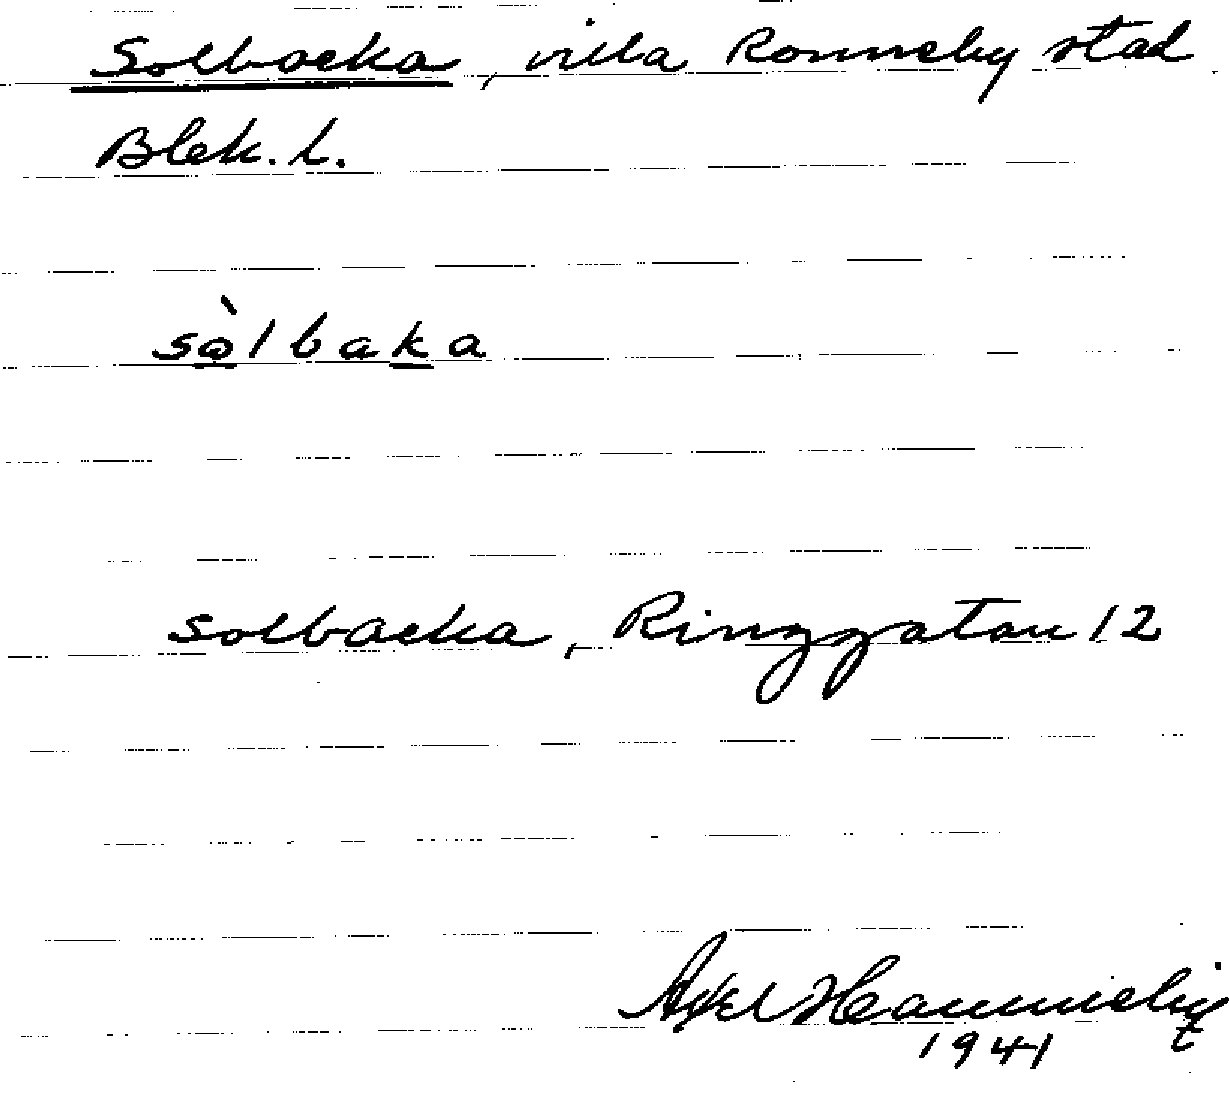 Solbacka, villa Ronneby stad
Blek. l.
sòlbaka
Solbacka, Ringgatan 12
Axel
1941